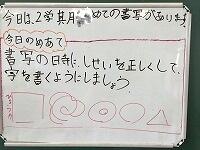 今日は、2学期はじめての書写があります。
今日のめあて
書写の日寺に、しせいを正しくして、
字を書くようにしましょう。